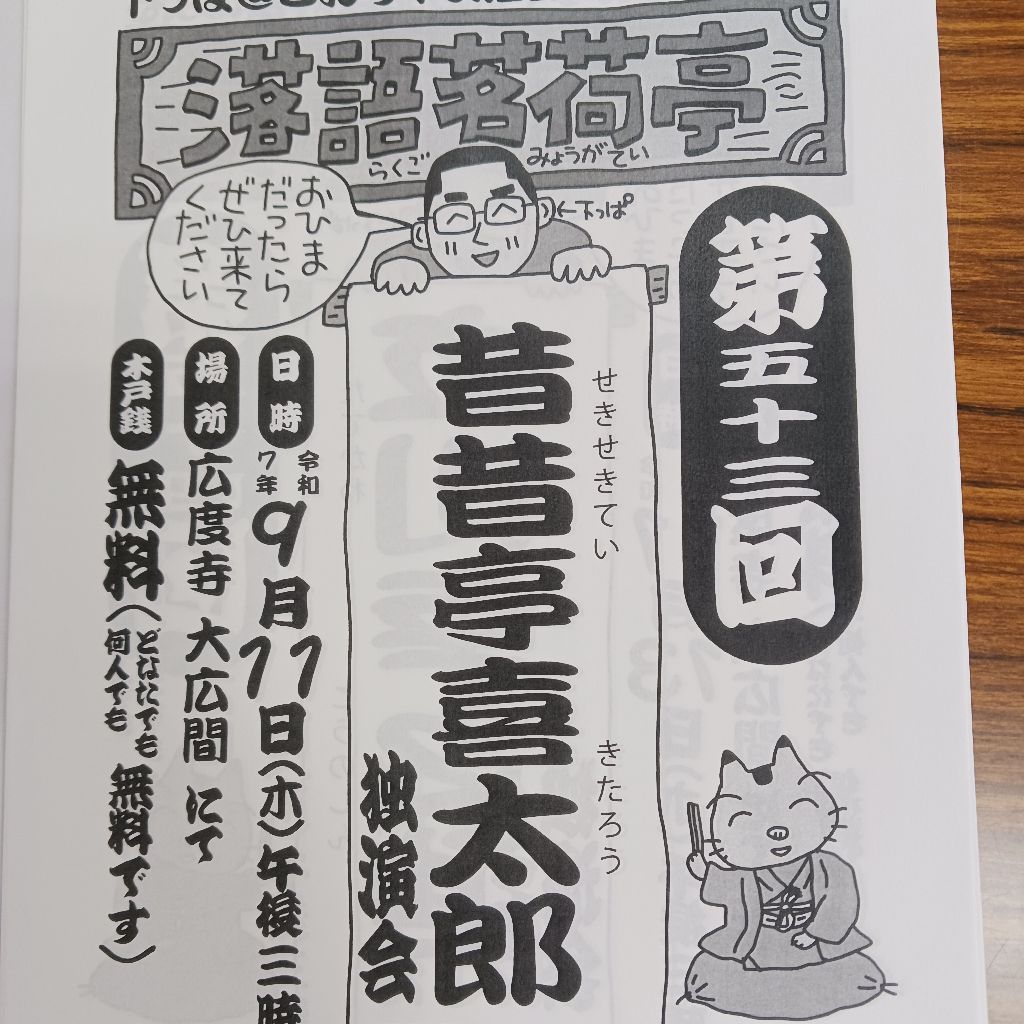 落語茗荷亭
らくご
みょうがてい
←下っぱ
おひま
だったら
ぜひ来て
ください
第五十三回
せきせきてい きたろう
昔昔亭喜太郎
独演会
日時 令和7年9月11日(木)午後三時
場所 広度寺 大広間 にて
木戸銭 無料(どなたでも何人でも無料です)